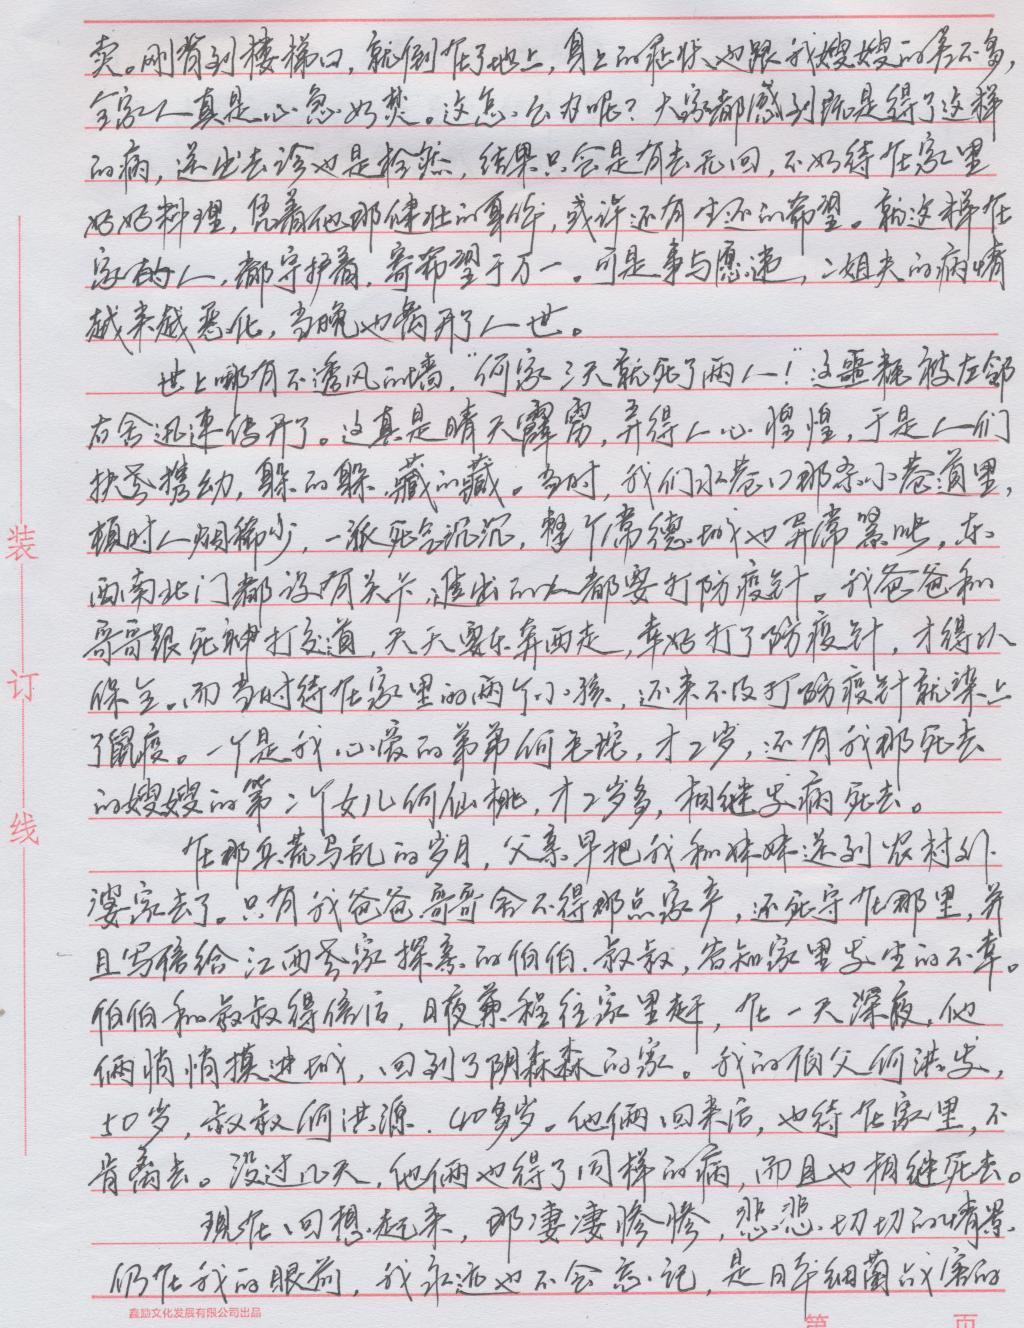 卖。刚背到楼梯口，就倒在了地上，身上的症状也跟我嫂嫂的差不多，
全家人真是心急如焚。这怎么办呢？大家都感到既是得了这样
的病，送出去诊也是枉然，结果只会是有去无回，不如待在家里
好好料理，凭着他那健壮的身体，或许还有生还的希望。就这样在
家的人，都守护着，寄希望于万一。可是事与愿违，二姐夫的病情
越来越恶化，当晚也离开了人世。
世上哪有不透风的墙，“何家三天就死了两人！”这噩耗被左邻
右舍迅速传开了。这真是晴天霹雳，弄得人心惶惶，于是人们
扶老携幼，躲的躲，藏的藏。当时，我们水巷口那条小巷道里，
顿时人烟稀少，一派死气沉沉，整个常德城也异常紧张，东
西南北门都设有关卡，进出的人都要打防疫针。我爸爸和
哥哥跟死神打交道，天天要东奔西走，幸好打了防疫针，才得以
保全。而当时待在家里的两个小孩，还来不及打防疫针就染上
了鼠疫。一个是我心爱的弟弟何毛它，才2岁，还有我那死去
的嫂嫂的第二个女儿何仙桃，才2岁多，相继发病死去。
在那兵荒马乱的岁月，父亲早把我和妹妹送到农村外
婆家去了。只有我爸爸哥哥舍不得那点家产，还死守在那里，并
且写信给江西老家探亲的伯伯、叔叔，告知家里发生的不幸。
伯伯和叔叔得信后，日夜兼程往家里赶，在一天深夜，他
俩悄悄摸进城，回到了阴森森的家。我的伯父何洪发，
50岁，叔叔何洪源，40多岁。他俩回来后，也待在家里，不
肯离去。没过几天，他俩也得了同样的病，而且也相继死去。
现在回想起来，那凄凄惨惨，悲悲切切的情景
仍在我的眼前，我永远也不会忘记，是日本细菌战害的
装
订
线
鑫励文化发展有限公司出品
第 页